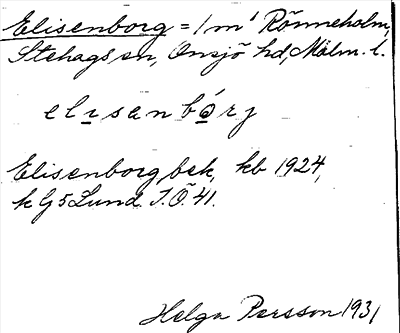 Elisenborg = 1 m¹ Rönneholm,
Stehags sn, Onsjö hd, Malm. l.
elisanbórj
Elisenborg bek, kb 1924,
k G5 Lund J.Ö. 41.
Helga Persson 1931